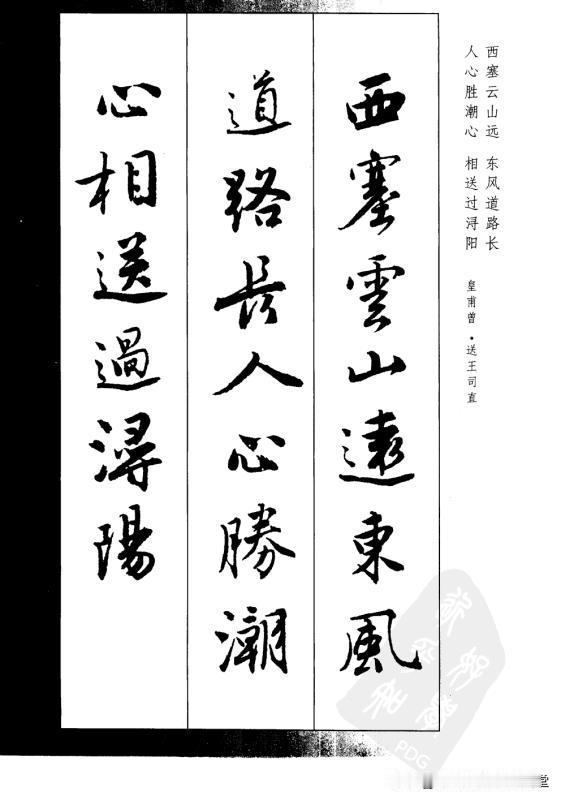 西塞云山远 东风道路长
人心胜潮心 相送过浔阳
皇甫曾·送王司直
西塞雲山遠東風
道路長人心勝潮
心相送過潯陽
PDG
堂